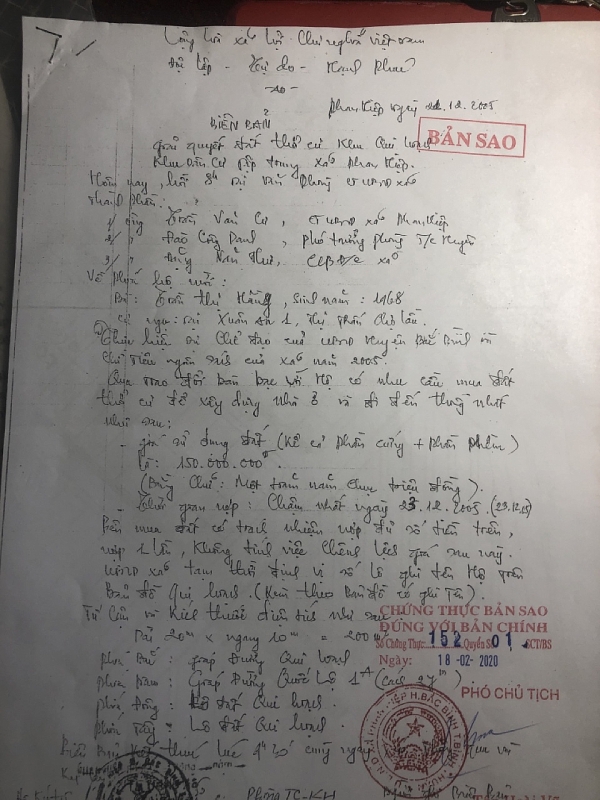 Cộng hòa xã hội chủ nghĩa việt nam
Độc lập - Tự do - Hạnh Phúc
Phan Hiệp ngày 22.12.2005
BIÊN BẢN
BẢN SAO
giải quyết đất thổ cư khu Qui hoạch
Khu dân cư tập trung xã Phan Hiệp.
Hôm nay, hồi 8h tại văn phòng UBND xã
Thành phần:
1/ ông Trần Văn Cư, CT UBND xã Phan Hiệp
2/ " Đào Công Danh, Phó trưởng phòng T/c huyện
3/ " Đặng Văn Thư, CCB Đ/c xã
Về phía hộ :
Bà: Trần Thị Hằng, sinh năm: 1968
cư ngụ: tại Xuân An 1, Thị trấn Chợ Lầu.
Thực hiện sự chỉ đạo của UBND huyện Bắc Bình và
chỉ tiêu ngân sách của xã năm 2005.
Qua trao đổi bàn bạc với Hộ có nhu cầu mua đất
thổ cư để xây dựng nhà ở và đi đến thống nhất
như sau:
- giá sử dụng đất (kể cả phần cứng + phần mềm)
là: 150.000.000đ
(Bằng chữ: Một trăm năm chục triệu đồng).
- Thời gian nộp: Chậm nhất ngày 23.12.2005. (23.12.05)
Bên mua đất có trách nhiệm nộp đủ số tiền trên,
nộp 1 lần, không tính việc chênh lệch giá sau này.
UBND xã tạm thời định vị số lô ghi tên Hộ trên
Bản đồ Qui hoạch. (Kèm theo Bản đồ có ghi tên).
Tứ Cận và Kích thước diện tích như sau
CHỨNG THỰC BẢN SAO
ĐÚNG VỚI BẢN CHÍNH
Dài 20m x ngang 10m = 200m²
Số Chứng Thực: 152 Quyển Số: 01 SCT/BS
Phía Bắc: giáp Đường Qui hoạch
Ngày: 18-02-2020
Phía Nam: Giáp Đường Quốc Lộ 1A (cách 27m)
PHÓ CHỦ TỊCH
Phía Đông: Lô đất Qui hoạch.
Phía Tây: Lô đất Qui hoạch.
Biên Bản kết thúc lúc cùng ngày
Phòng TC-KH